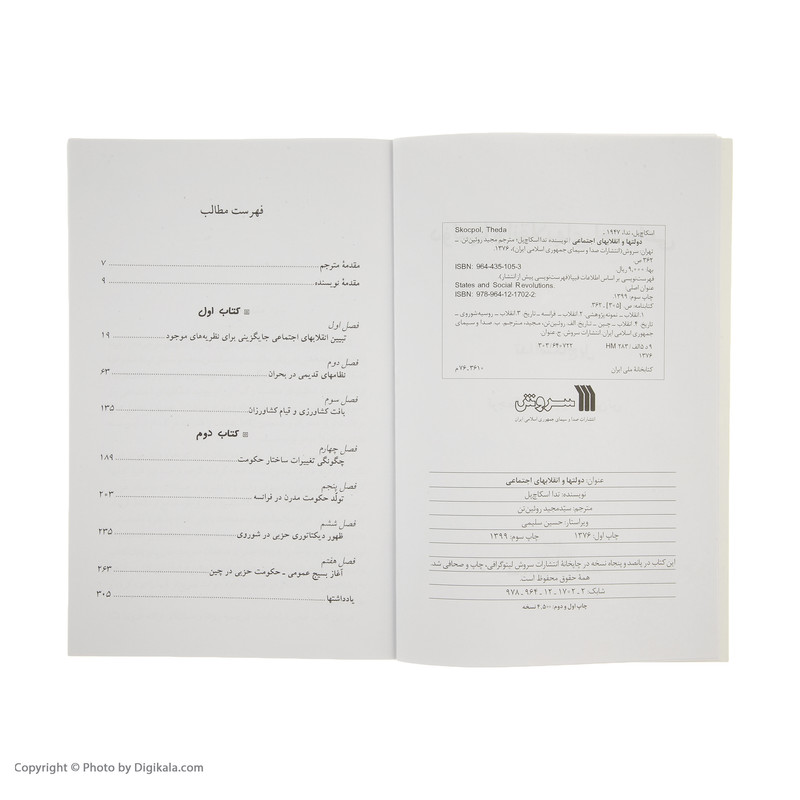 اسکاچ‌پل، تدا، ۱۹۴۷ـ Skocpol, Theda
دولتها و انقلابهای اجتماعی / نویسنده تدا اسکاچ‌پل؛ مترجم مجید روئین‌تن. ـ
تهران: سروش (انتشارات صدا و سیمای جمهوری اسلامی ایران)، ۱۳۷۶.
۳۶۲ ص
بها ۹,۰۰۰ ریال ISBN: 964-435-105-3
فهرست‌نویسی بر اساس اطلاعات فیپا (فهرست‌نویسی پیش از انتشار).
عنوان اصلی: States and Social Revolutions.
چاپ سوم: ۱۳۹۹ ISBN: 978-964-12-1702-2:
کتابنامه: ص. [۳۰۵] ـ ۳۶۲
۱. انقلاب ـ نمونه‌پژوهشی. ۲. انقلاب ـ فرانسه ـ تاریخ. ۳. انقلاب ـ روسیه شوروی ـ
تاریخ. ۴. انقلاب ـ چین ـ تاریخ. الف. روئین‌تن، مجید، مترجم. ب. صدا و سیمای
جمهوری اسلامی ایران. انتشارات سروش. ج. عنوان.
۹ د ۵ الف / ۲۸۳ HM ۳۰۳/۶۴۰۷۲۲
۱۳۷۶
کتابخانهٔ ملی ایران ۳۶۱۰ـ۷۶م
سروش
انتشارات صدا و سیمای جمهوری اسلامی ایران
عنوان: دولتها و انقلابهای اجتماعی
نویسنده: تدا اسکاچ‌پل
مترجم: سیّدمجید روئین‌تن
ویراستار: حسین سلیمی
چاپ اول: ۱۳۷۶ چاپ سوم: ۱۳۹۹
این کتاب در پانصد و پنجاه نسخه در چاپخانهٔ انتشارات سروش لیتوگرافی، چاپ و صحافی شد.
همهٔ حقوق محفوظ است.
شابک: ۲ ـ ۱۷۰۲ ـ ۱۲ ـ ۹۶۴ ـ ۹۷۸
چاپ اول و دوم: ۴,۵۰۰ نسخه
فهرست مطالب
مقدمهٔ مترجم ۷
مقدمهٔ نویسنده ۹
کتاب اول
فصل اول
تبیین انقلابهای اجتماعی جایگزینی برای نظریه‌های موجود ۱۹
فصل دوم
نظامهای قدیمی در بحران ۶۳
فصل سوم
بافت کشاورزی و قیام کشاورزان ۱۳۵
کتاب دوم
فصل چهارم
چگونگی تغییرات ساختار حکومت ۱۸۹
فصل پنجم
تولّد حکومت مدرن در فرانسه ۲۰۳
فصل ششم
ظهور دیکتاتوری حزبی در شوروی ۲۳۵
فصل هفتم
آغاز بسیج عمومی ـ حکومت حزبی در چین ۲۶۳
یادداشتها ۳۰۵
Copyright © Photo by Digikala.com